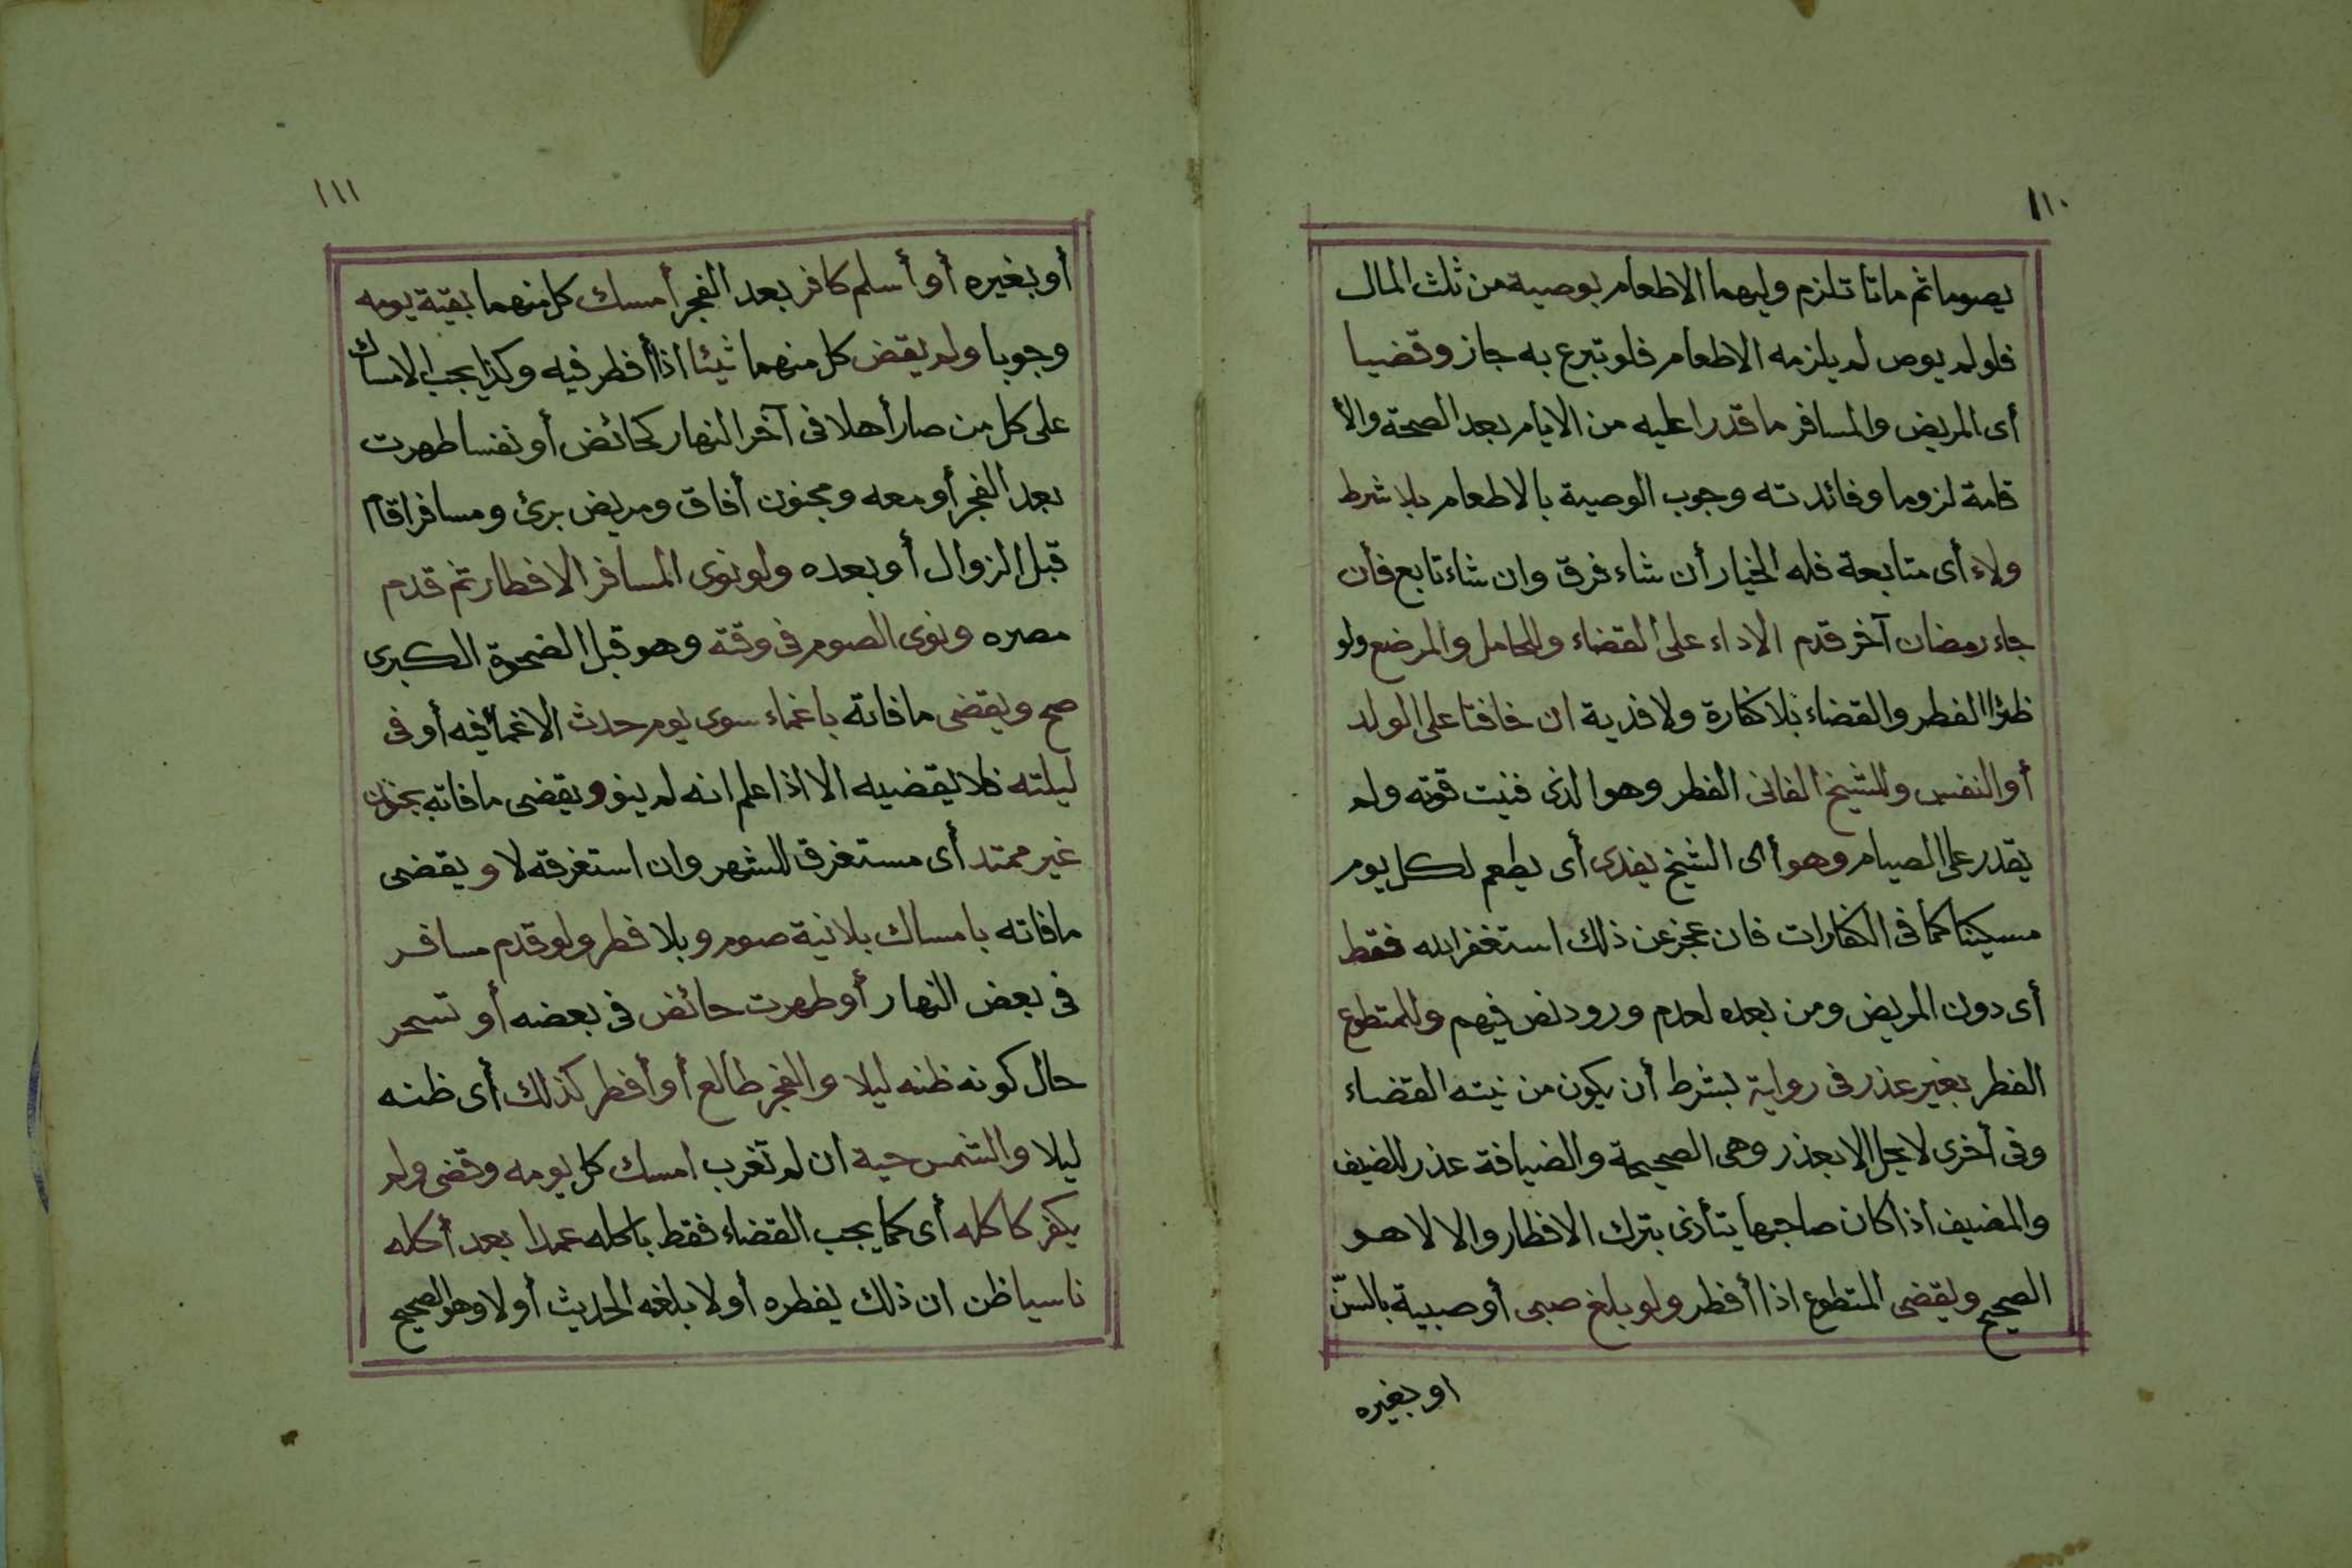 ١١٠
يصوما ثم ماتا تلزم وليهما الاطعام بوصية من ثلث المال
فلو لم يوص لم يلزمه الاطعام فلو تبرع به جاز وقضيا
أى المريض والمسافر ما قدرا عليه من الايام بعد الصحة والأ
قامة لزوما وفائدته وجوب الوصية بالاطعام بلا شرط
ولاء أى متابعة فله الخيار أن شاء فرق وان شاء تابع فأن
جاء رمضان آخر قدم الاداء على القضاء وللحامل والمرضع ولو
ظئرا الفطر والقضاء بلا كفارة ولا فدية ان خافتا على الولد
أو النفس وللشيخ الفانى الفطر وهو الذى فنيت قوته ولم
يقدر على الصيام وهو أى الشيخ يفدى أى يطعم لكل يوم
مسكينا كما فى الكفارات فان عجز عن ذلك استغفر الله فقط
أى دون المريض ومن بعده لعدم ورود نص فيهم وللمتطوع
الفطر بغير عذر فى رواية بشرط أن يكون من نيته القضاء
وفى أخرى لا يحل الا بعذر وهى الصحيحة والضيافة عذر للضيف
والمضيف اذا كان صاحبها يتأذى بترك الافطار والا لا هو
الصحيح ويقضى المتطوع اذا أفطر ولو بلغ صبى أو صبية بالسنّ
او بغيره
١١١
أو بغيره أو أسلم كافر بعد الفجر أمسك كل منهما بقية يومه
وجوبا ولم يقض كل منهما شيئا اذا أفطر فيه وكذا يجب الامساك
على كل من صار أهلا فى آخر النهار كحائض أو نفسا طهرت
بعد الفجر أو معه ومجنون أفاق ومريض برئ ومسافر اقام
قبل الزوال أو بعده ولو نوى المسافر الافطار ثم قدم
مصره ونوى الصوم فى وقته وهو قبل الضحوة الكبرى
صح ويقضى ما فاته باغماء سوى يوم حدث الاغماء فيه أو فى
ليلته فلا يقضيه الا اذا علم انه لم ينو ويقضى ما فاته بجنون
غير ممتد أى مستغرق للشهر وان استغرقه لا ويقضى
ما فاته بامساك بلا نية صوم وبلا فطر ولو قدم مسافر
فى بعض النهار أو طهرت حائض فى بعضه أو تسحر
حال كونه ظنه ليلا والفجر طالع أو أفطر كذلك أى ظنه
ليلا والشمس حية ان لم تغرب امسك كل يومه وقضى ولم
يكفر كاكله أى كما يجب القضاء فقط باكله عمدا بعد أكله
ناسيا ظن ان ذلك يفطره أو لا بلغه الحديث أو لا وهو الصحيح